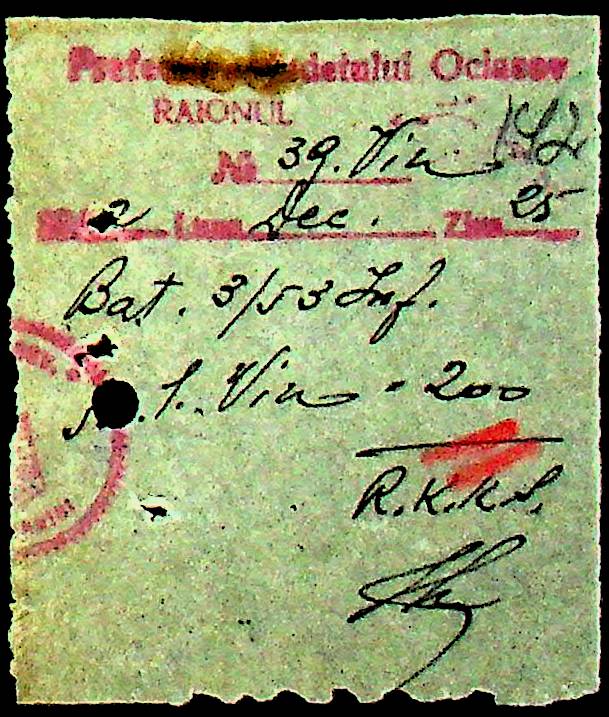 Prefe detului Ociacov
RAIONUL
№ 39. Vin
2 Luna Dec. Ziua 25
Bat. 3/53 Inf.
1. Vin - 200
R.K.K.S.